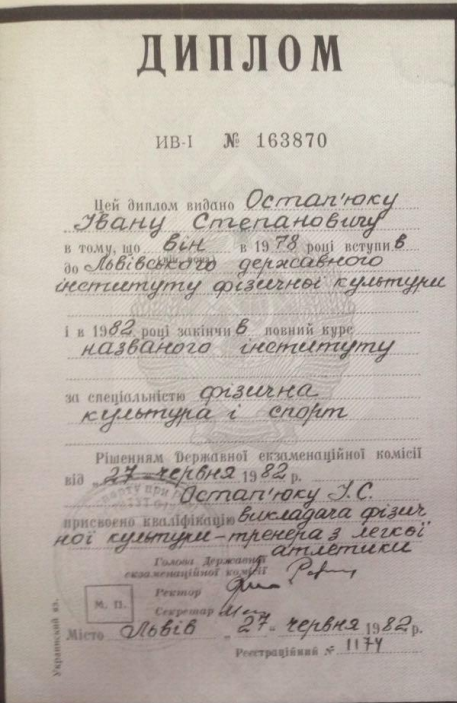 ДИПЛОМ
ИВ-I № 163870
Цей диплом видано Остап'юку
Івану Степановичу
в тому, що він в 1978 році вступив
до Львівського державного
інституту фізичної культури
і в 1982 році закінчив повний курс
названого інституту
за спеціальністю фізична
культура і спорт
Рішенням Державної екзаменаційної комісії
від „27" червня 1982 р.
Остап'юку І.С.
присвоєно кваліфікацію викладача фізич
ної культури-тренера з легкої
атлетики
Голова Державної
екзаменаційної комісії
Ректор
М. П.
Секретар
Місто Львів „27" червня 1982 р.
Реєстраційний № 1174
Украинский яз.